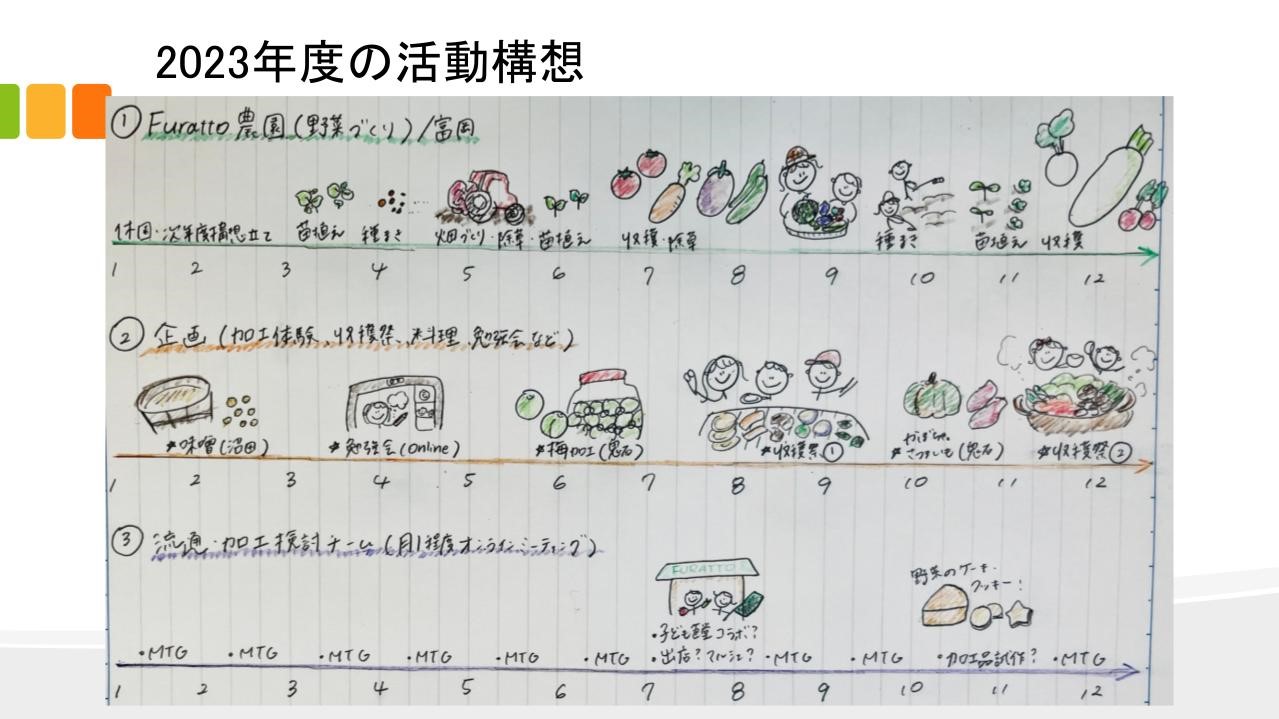 2023年度の活動構想
① Furatto 農園(野菜づくり)/富岡
休園・次年度構想立て 苗植え 種まき 畑づくり・除草・苗植え 収穫・除草 種まき 苗植え 収穫
1 2 3 4 5 6 7 8 9 10 11 12
② 企画(加工体験、収穫祭、料理、勉強会など)
*味噌(沼田) *勉強会(Online) *梅加工(鬼石) *収穫祭① かぼちゃ、
*さつまいも(鬼石) *収穫祭②
1 2 3 4 5 6 7 8 9 10 11 12
③ 流通・加工検討チーム(月1程度オンラインミーティング)
FURATTO
野菜のケーキ・
クッキー!
・子ども食堂コラボ?
・MTG ・MTG ・MTG ・MTG ・MTG ・MTG ・出店?マルシェ? ・MTG ・MTG ・加工品試作? ・MTG
1 2 3 4 5 6 7 8 9 10 11 12